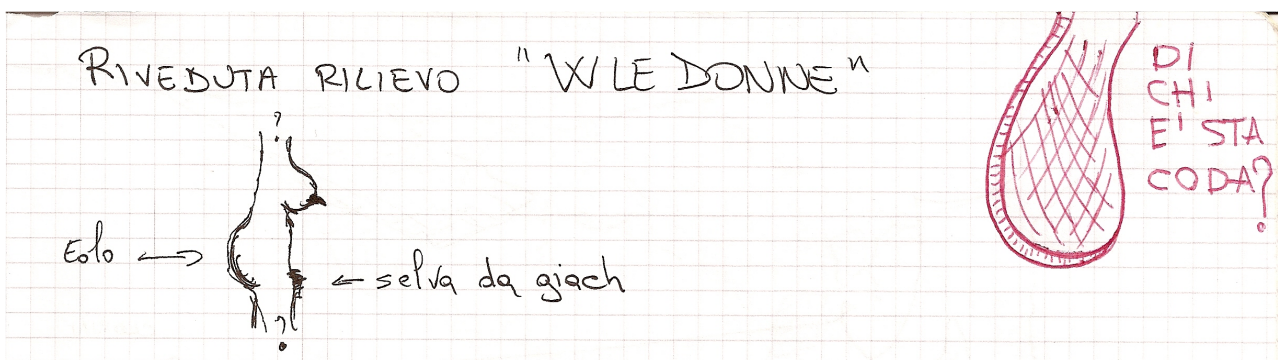 RIVEDUTA RILIEVO "W LE DONNE"
?
Eolo
selva da giach
?
DI
CHI
E' STA
CODA?